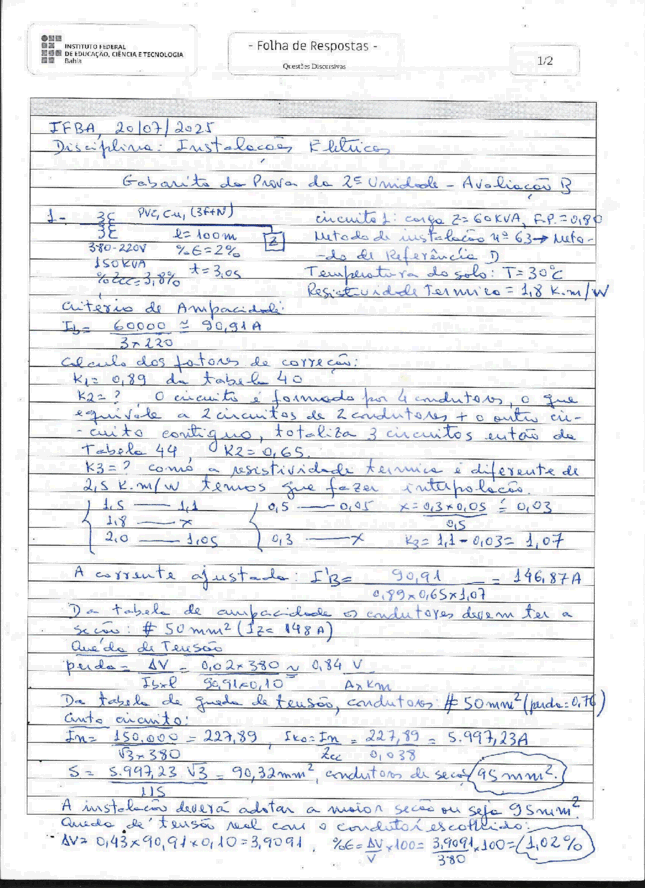 INSTITUTO FEDERAL
DE EDUCAÇÃO, CIÊNCIA E TECNOLOGIA
Bahia
- Folha de Respostas -
Questões Discursivas
1/2
IFBA, 20/07/2025
Disciplina: Instalações Elétricas
Gabarito da Prova da 2ª Unidade - Avaliação B
1- 3C PVC, Cu, (3F+N) circuito 1: carga Z=60KVA, F.P.=0,80
3E l=100m Z Método de instalação nº 63→ Méto-
380-220V %E=2% -do de Referência D
150KVA t=3,0s Temperatura do solo: T=30°C
%Zcc=3,8% Resistividade Térmica = 1,8 K.m/W
Critério de Ampacidade:
Ib= 60000 ≅ 90,91A
3×220
Cálculo dos fatores de correção:
K1= 0,89 da tabela 40
K2= ? O circuito é formado por 4 condutores, o que
equivale a 2 circuitos de 2 condutores + o outro cir-
-cuito contíguo, totaliza 3 circuitos então da
Tabela 44, K2= 0,65.
K3=? como a resistividade térmica é diferente de
2,5 K.m/W temos que fazer interpolação.
1,5 — 1,1 0,5 — 0,05 x= 0,3×0,05 = 0,03
1,8 — x 0,5
2,0 — 1,05 0,3 — x K3= 1,1-0,03= 1,07
A corrente ajustada: I'B= 90,91 = 146,87A
0,89×0,65×1,07
Da tabela de ampacidade os condutores devem ter a
seção: # 50 mm² (Iz= 148A)
Queda de Tensão
perda= ΔV = 0,02×380 ≈ 0,84 V
Ib×l 90,91×0,10 A×Km
Da tabela de queda de tensão, condutores: # 50mm² (perda=0,76)
Curto circuito:
In= 150.000 = 227,89, Iko= In = 227,89 = 5.997,23A
√3×380 Zcc 0,038
S= 5.997,23 √3 = 90,32mm², condutores de seção 95mm².
115
A instalação deverá adotar a maior seção ou seja 95mm².
Queda de tensão real com o condutor escolhido:
ΔV= 0,43×90,91×0,10=3,9091, %E= ΔV ×100= 3,9091 ×100= 1,02%
V 380